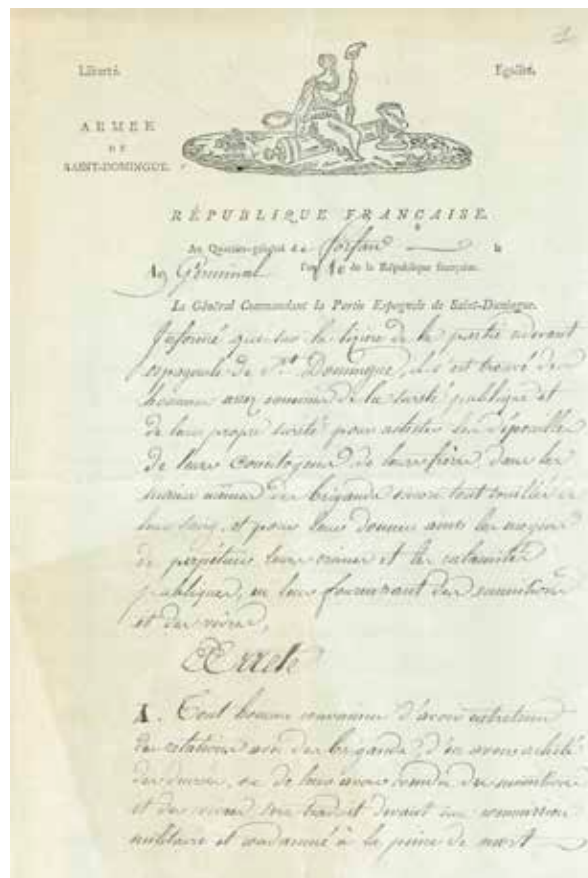 Liberté.
Egalité.
ARMÉE
DE
SAINT-DOMINGUE.
RÉPUBLIQUE FRANÇAISE.
Au Quartier-général de le
Germinal l'an 10 de la République française.
Le Général Commandant la Partie Espagnole de Saint-Domingue.
Informé que sur la ligne de la partie
espagnole de St. Domingue, il s'est trouvé des
hommes assez ennemis de la sureté publique et
de leur propre sureté pour acheter les dépouilles
de leurs concitoyens, de leurs frères, dans les
mains mêmes des brigands encore tout souillés de
leur sang, et pour leur donner ainsi les moyens
de perpétuer leurs crimes et les calamités
publiques, en leur fournissant des munitions
et des vivres,
Arrete
1. Tout homme convaincu d'avoir entretenu
des relations avec des brigands, d'en avoir acheté
des denrées, ou de leur avoir vendu des munitions
et des vivres sera traduit devant une commission
militaire et condamné à la peine de mort